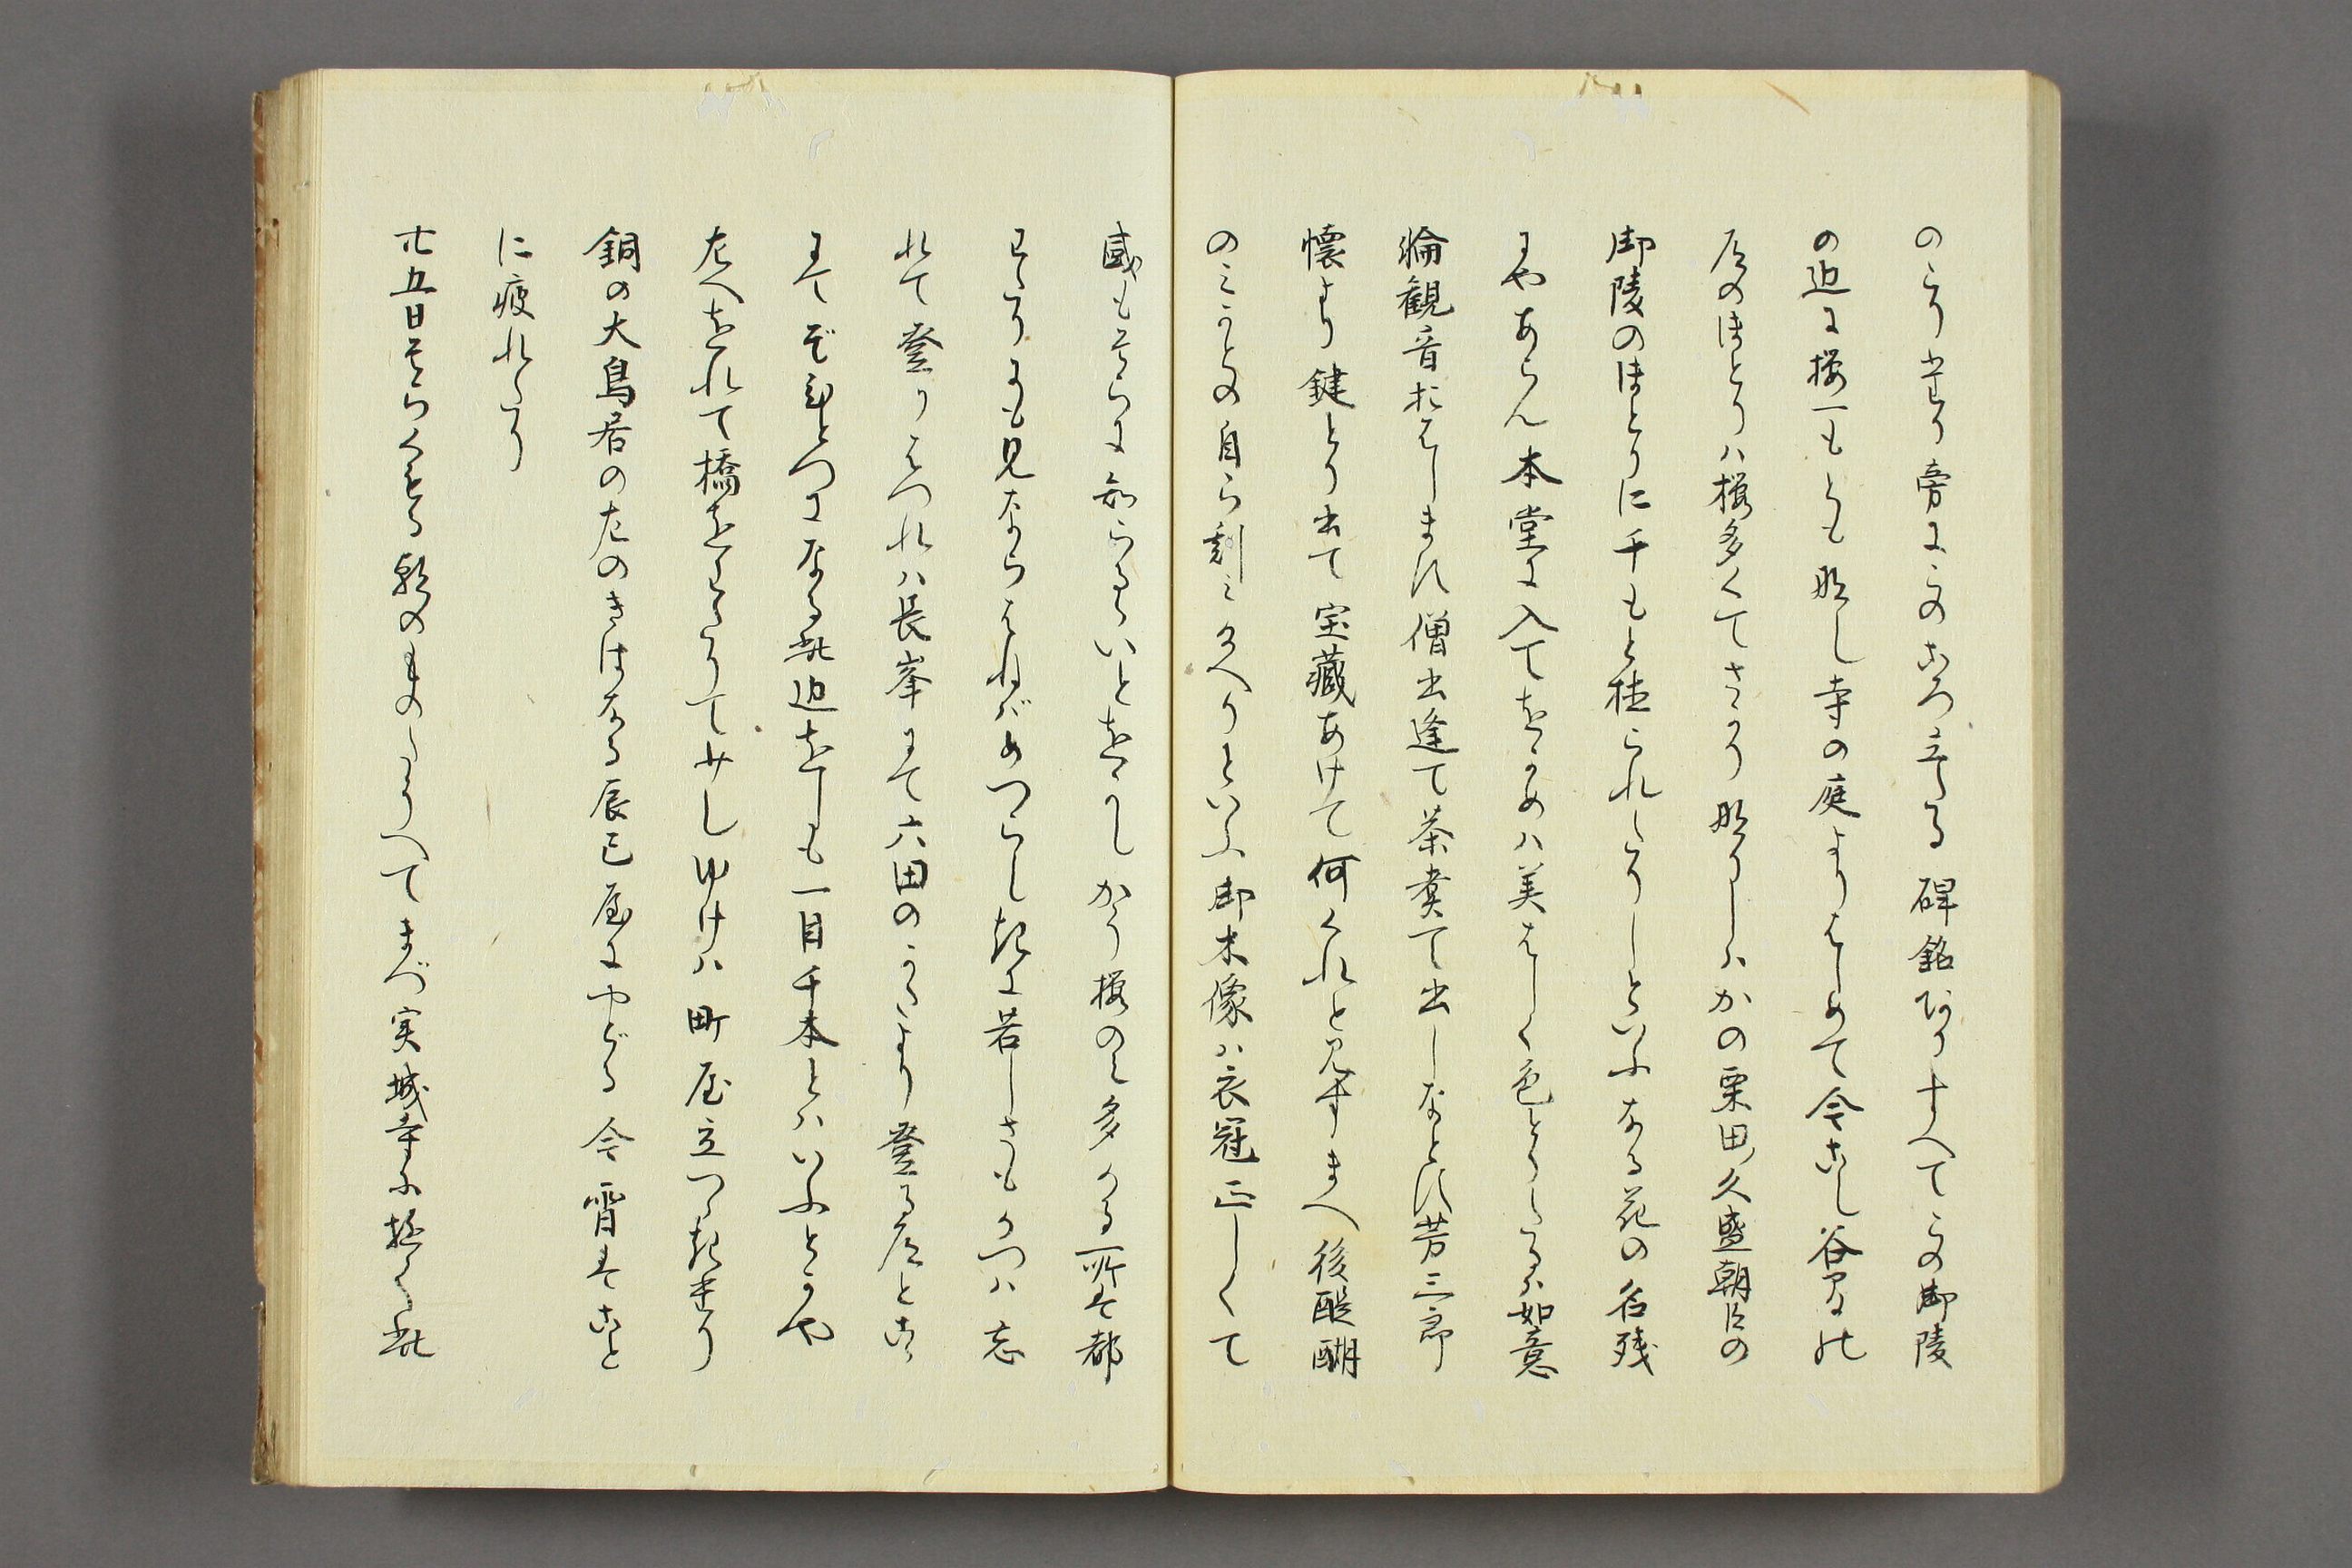 のこり少なり旁にこのころ立たる碑銘ありすへてこの御陵
の辺に桜一もとも那し寺の庭よりはしめて今すこし谷間の
尾のほとりハ桜多くてさかり那りしハかの栗田久盛朝臣の
御陵のほとりに千もと植られたりしといふなる花の名残
にやあらん本堂に入てをかめハ美はしく色とりたるハ如意
輪観音おはします僧出逢て茶煮て出しなとす芳三郎
懐より鍵とり出て宝蔵あけて何くれと見すまへ後醍醐
のみかとの自ら刻み給へりといふ御木像ハ衣冠正しくて
威もそらに知らるゝいとをかしかり桜のミ多かる所を都
わたりにも見ならはねばめつらしきに苦しさもかつハ忘
れて登りはつれハ長峯にて六田のかたより登る尾とこゝ
にてぞひとつになる此辺をしも一目千本とハいふとかや
左へをれて橋をわたりてすこしゆけハ町屋立つゝきたり
銅の大鳥居の左のきはなる辰巳屋にやどる今霄はこと
に疲れたり
廿五日そらくもる朝のものたうへてまづ実城寺に極く此